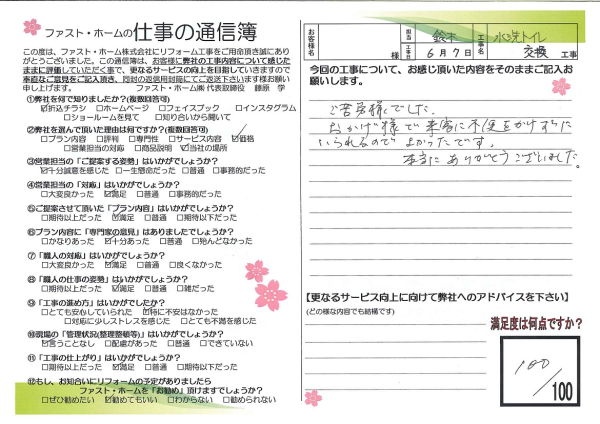 ファスト・ホームの仕事の通信簿
この度は、ファスト・ホーム株式会社にリフォーム工事をご用命頂き誠にあり
がとうございました。この通信簿は、お客様に弊社の工事内容について感じた
ままに評価していただく事で、更なるサービスの向上を目指していきますので
率直なご意見をご記入頂き、同封の返信用封筒にてご返送下さいます様お願い
申し上げます。 ファスト・ホーム㈱ 代表取締役 藤原 学
①弊社を何で知りましたか?(複数回答可)
☑折込チラシ □ホームページ □フェイスブック □インスタグラム
□ショールームを見て □知り合いから聞いて
②弊社を選んで頂いた理由は何ですか?(複数回答可)
□プラン内容 □評判 □専門性 □サービス内容 ☑価格
□営業担当の対応 □商品説明 ☑当社の場所
③営業担当の「ご提案する姿勢」はいかがでしょうか?
☑十分誠意を感じた □一生懸命だった □普通 □事務的だった
④営業担当の「対応」はいかがでしょうか?
□大変良かった ☑満足 □普通 □事務的だった
⑤ご提案させて頂いた「プラン内容」はいかがでしょうか?
□期待以上だった ☑満足 □普通 □期待以下だった
⑥プラン内容に「専門家の意見」はありましたでしょうか?
□かなりあった ☑十分あった □普通 □殆んどなかった
⑦「職人の対応」はいかがでしょうか?
□大変良かった ☑満足 □普通 □良くなかった
⑧「職人の仕事の姿勢」はいかがでしょうか?
□期待以上だった ☑満足 □普通 □雑だった
⑨「工事の進め方」はいかがでしたか?
□とても安心していられた ☑特に不安はなかった
□対応に少しストレスを感じた □とても不満を感じた
⑩現場の「管理状況(整理整頓等)」はいかがでしたか?
☑言うことなし □配慮があった □普通 □できていない
⑪「工事の仕上がり」はいかがでしょうか?
□期待以上だった ☑満足 □普通 □期待以下だった
⑫もし、お知合いにリフォームの予定がありましたら
ファスト・ホームを「お勧め」頂けますでしょうか?
□ぜひ勧めたい ☑勧めてもいい □わからない □勧められない
お客様名 様
担当 鈴木
工事日 6月7日
工事名 水洗トイレ
交換 工事
今回の工事について、お感じ頂いた内容をそのままご記入お
願いします。
ご苦労様でした。
おかげ様で来客に不便をかけずに
いられるのでよかったです。
本当にありがとうございました。
【更なるサービス向上に向けて弊社へのアドバイスを下さい】
(どの様な内容でも結構です)
満足度は何点ですか?
100
/100